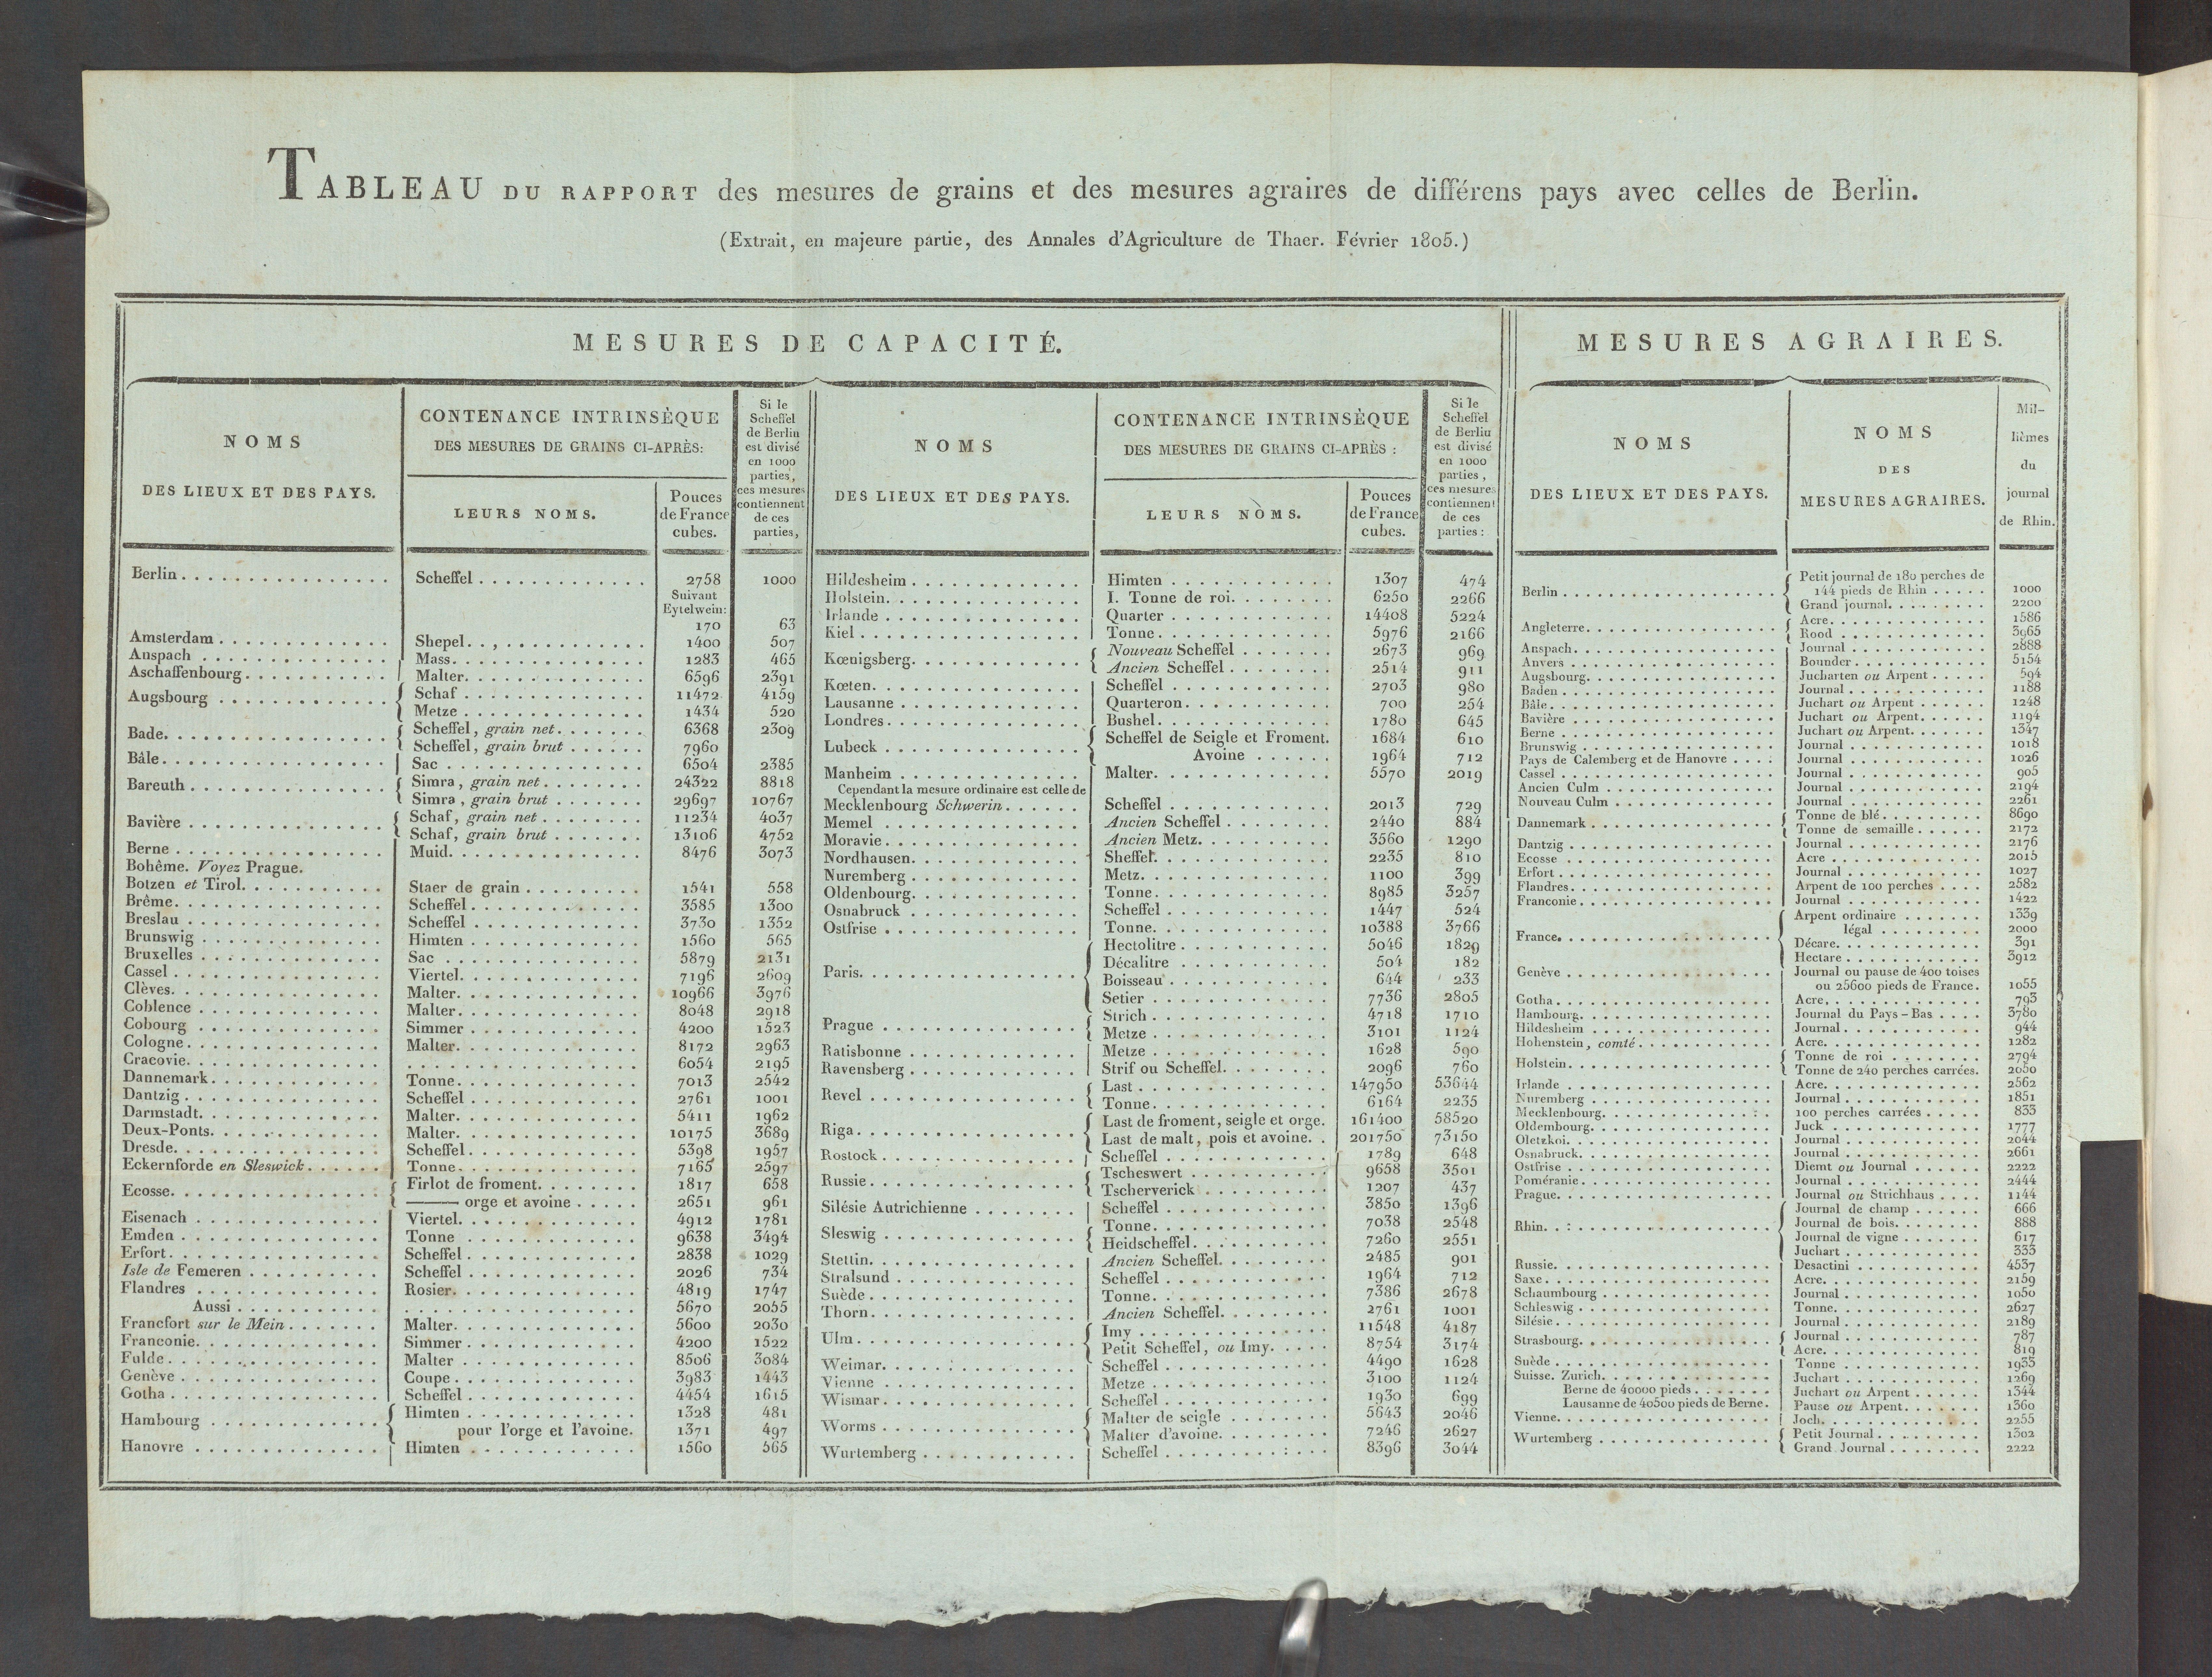 TABLEAU DU RAPPORT des mesures de grains et des mesures agraires de différens pays avec celles de Berlin.
(Extrait, en majeure partie, des Annales d'Agriculture de Thaer. Février 1805.)
MESURES DE CAPACITÉ.
NOMS
DES LIEUX ET DES PAYS.
CONTENANCE INTRINSÈQUE
DES MESURES DE GRAINS CI-APRÈS:
LEURS NOMS.
Pouces
de France
cubes.
Si le
Scheffel
de Berlin
est divisé
en 1000
parties,
ces mesures
contiennent
de ces
parties,
Berlin Scheffel 2758 1000
Suivant
Eytelwein:
170 63
Amsterdam Shepel 1400 507
Anspach Mass 1283 465
Aschaffenbourg Malter 6596 2391
Augsbourg Schaf 11472 4159
Metze 1434 520
Bade Scheffel, grain net 6368 2309
Scheffel, grain brut 7960
Bâle Sac 6504 2385
Bareuth Simra, grain net 24322 8818
Simra, grain brut 29697 10767
Bavière Schaf, grain net 11234 4037
Schaf, grain brut 13106 4752
Berne Muid 8476 3073
Bohême. Voyez Prague.
Botzen et Tirol Staer de grain 1541 558
Brême Scheffel 3585 1300
Breslau Scheffel 3730 1352
Brunswig Himten 1560 565
Bruxelles Sac 5879 2131
Cassel Viertel 7196 2609
Clèves Malter 10966 3976
Coblence Malter 8048 2918
Cobourg Simmer 4200 1523
Cologne Malter 8172 2963
Cracovie 6054 2195
Dannemark Tonne 7013 2542
Dantzig Scheffel 2761 1001
Darmstadt Malter 5411 1962
Deux-Ponts Malter 10175 3689
Dresde Scheffel 5398 1957
Eckernforde en Sleswick Tonne 7165 2597
Ecosse Firlot de froment 1817 658
——— orge et avoine 2651 961
Eisenach Viertel 4912 1781
Emden Tonne 9638 3494
Erfort Scheffel 2838 1029
Isle de Femeren Scheffel 2026 734
Flandres Rosier 4819 1747
Aussi 5670 2055
Francfort sur le Mein Malter 5600 2030
Franconie Simmer 4200 1522
Fulde Malter 8506 3084
Genève Coupe 3983 1443
Gotha Scheffel 4454 1615
Hambourg Himten 1328 481
pour l'orge et l'avoine. 1371 497
Hanovre Himten 1560 565
NOMS
DES LIEUX ET DES PAYS.
CONTENANCE INTRINSÈQUE
DES MESURES DE GRAINS CI-APRÈS :
LEURS NOMS.
Pouces
de France
cubes.
Si le
Scheffel
de Berlin
est divisé
en 1000
parties,
ces mesures
contiennent
de ces
parties :
Hildesheim Himten 1307 474
Holstein I. Tonne de roi 6250 2266
Irlande Quarter 14408 5224
Kiel Tonne 5976 2166
Kœnigsberg Nouveau Scheffel 2673 969
Ancien Scheffel 2514 911
Kœten Scheffel 2703 980
Lausanne Quarteron 700 254
Londres Bushel 1780 645
Lubeck Scheffel de Seigle et Froment. 1684 610
Avoine 1964 712
Manheim Malter 5570 2019
Cependant la mesure ordinaire est celle de
Mecklenbourg Schwerin Scheffel 2013 729
Memel Ancien Scheffel 2440 884
Moravie Ancien Metz 3560 1290
Nordhausen Sheffel 2235 810
Nuremberg Metz 1100 399
Oldenbourg Tonne 8985 3257
Osnabruck Scheffel 1447 524
Ostfrise Tonne 10388 3766
Paris Hectolitre 5046 1829
Décalitre 504 182
Boisseau 644 233
Setier 7736 2805
Prague Strich 4718 1710
Metze 3101 1124
Ratisbonne Metze 1628 590
Ravensberg Strif ou Scheffel 2096 760
Revel Last 147950 53644
Tonne 6164 2235
Riga Last de froment, seigle et orge. 161400 58520
Last de malt, pois et avoine. 201750 73150
Rostock Scheffel 1789 648
Russie Tscheswert 9658 3501
Tscherverick 1207 437
Silésie Autrichienne Scheffel 3850 1396
Sleswig Tonne 7038 2548
Heidscheffel 7260 2551
Stettin Ancien Scheffel 2485 901
Stralsund Scheffel 1964 712
Suède Tonne 7386 2678
Thorn Ancien Scheffel 2761 1001
Ulm Imy 11548 4187
Petit Scheffel, ou Imy 8754 3174
Weimar Scheffel 4490 1628
Vienne Metze 3100 1124
Wismar Scheffel 1930 699
Worms Malter de seigle 5643 2046
Malter d'avoine 7246 2627
Wurtemberg Scheffel 8396 3044
MESURES AGRAIRES.
NOMS
DES LIEUX ET DES PAYS.
NOMS
DES
MESURES AGRAIRES.
Mil-
lièmes
du
journal
de Rhin.
Berlin Petit journal de 180 perches de
144 pieds de Rhin 1000
Grand journal 2200
Angleterre Acre 1586
Rood 3965
Anspach Journal 2888
Anvers Bounder 5154
Augsbourg Jucharten ou Arpent 594
Baden Journal 1188
Bâle Juchart ou Arpent 1248
Bavière Juchart ou Arpent 1194
Berne Juchart ou Arpent 1347
Brunswig Journal 1018
Pays de Calemberg et de Hanovre Journal 1026
Cassel Journal 905
Ancien Culm Journal 2194
Nouveau Culm Journal 2261
Dannemark Tonne de blé 8690
Tonne de semaille 2172
Dantzig Journal 2176
Ecosse Acre 2015
Erfort Journal 1027
Flandres Arpent de 100 perches 2582
Franconie Journal 1422
France Arpent ordinaire 1339
légal 2000
Décare 391
Hectare 3912
Genève Journal ou pause de 400 toises
ou 25600 pieds de France. 1055
Gotha Acre 793
Hambourg Journal du Pays-Bas 3780
Hildesheim Journal 944
Hohenstein, comté Acre 1282
Holstein Tonne de roi 2794
Tonne de 240 perches carrées. 2050
Irlande Acre 2562
Nuremberg Journal 1851
Mecklenbourg 100 perches carrées 833
Oldembourg Juck 1777
Oletzkoi Journal 2044
Osnabruck Journal 2661
Ostfrise Diemt ou Journal 2222
Poméranie Journal 2444
Prague Journal ou Strichhaus 1144
Rhin Journal de champ 666
Journal de bois 888
Journal de vigne 617
Juchart 333
Russie Desactini 4537
Saxe Acre 2159
Schaumbourg Journal 1050
Schleswig Tonne 2627
Silésie Journal 2189
Strasbourg Journal 787
Acre 819
Suède Tonne 1933
Suisse. Zurich Juchart 1269
Berne de 40000 pieds Juchart ou Arpent 1344
Lausanne de 40500 pieds de Berne. Pause ou Arpent 1360
Vienne Joch 2255
Wurtemberg Petit Journal 1302
Grand Journal 2222